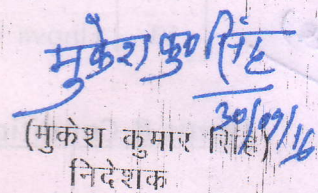 मुकेश कु० सिंह
30/09/16
(मुकेश कुमार सिंह)
निदेशक